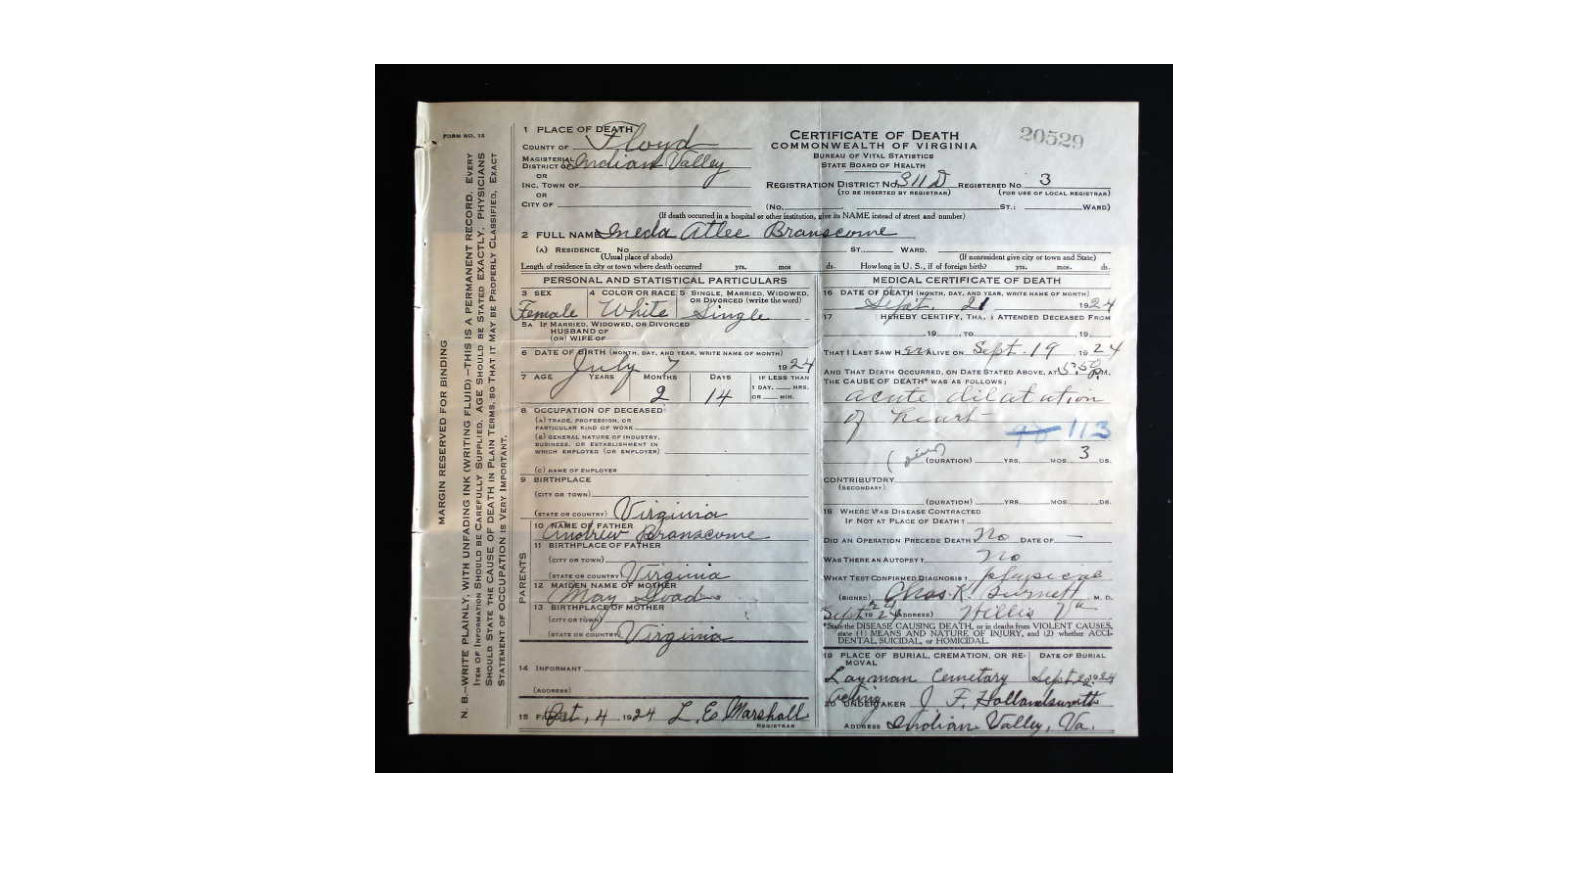 FORM NO. 12
MARGIN RESERVED FOR BINDING
N. B.—WRITE PLAINLY, WITH UNFADING INK (WRITING FLUID)—THIS IS A PERMANENT RECORD. EVERY
ITEM OF INFORMATION SHOULD BE CAREFULLY SUPPLIED. AGE SHOULD BE STATED EXACTLY. PHYSICIANS
SHOULD STATE THE CAUSE OF DEATH IN PLAIN TERMS, SO THAT IT MAY BE PROPERLY CLASSIFIED. EXACT
STATEMENT OF OCCUPATION IS VERY IMPORTANT.
1 PLACE OF DEATH
COUNTY OF Floyd
MAGISTERIAL DISTRICT OF Indian Valley
OR
INC. TOWN OF
OR
CITY OF
CERTIFICATE OF DEATH
COMMONWEALTH OF VIRGINIA
BUREAU OF VITAL STATISTICS
STATE BOARD OF HEALTH
20529
REGISTRATION DISTRICT NO. 311D REGISTERED NO. 3
(TO BE INSERTED BY REGISTRAR) (FOR USE OF LOCAL REGISTRAR)
(No. ST.; WARD)
(If death occurred in a hospital or other institution, give its NAME instead of street and number)
2 FULL NAME Ineda Atlee Branscome
(A) RESIDENCE. No. ST. WARD.
(Usual place of abode) (If nonresident give city or town and State)
Length of residence in city or town where death occurred yrs. mos. ds. How long in U. S., if of foreign birth? yrs. mos. ds.
PERSONAL AND STATISTICAL PARTICULARS
3 SEX 4 COLOR OR RACE 5 SINGLE, MARRIED, WIDOWED, OR DIVORCED (write the word)
Female White Single
5A IF MARRIED, WIDOWED, OR DIVORCED
HUSBAND OF
(OR) WIFE OF
6 DATE OF BIRTH (MONTH, DAY, AND YEAR, WRITE NAME OF MONTH)
July 7 1924
7 AGE YEARS MONTHS DAYS IF LESS THAN
1 DAY, HRS.
OR MIN.
2 14
8 OCCUPATION OF DECEASED
(A) TRADE, PROFESSION, OR
PARTICULAR KIND OF WORK
(B) GENERAL NATURE OF INDUSTRY,
BUSINESS, OR ESTABLISHMENT IN
WHICH EMPLOYED (OR EMPLOYER)
(C) NAME OF EMPLOYER
9 BIRTHPLACE
(CITY OR TOWN)
(STATE OR COUNTRY) Virginia
PARENTS
10 NAME OF FATHER
Andrew Branscome
11 BIRTHPLACE OF FATHER
(CITY OR TOWN)
(STATE OR COUNTRY) Virginia
12 MAIDEN NAME OF MOTHER
May
13 BIRTHPLACE OF MOTHER
(CITY OR TOWN)
(STATE OR COUNTRY) Virginia
14 INFORMANT
(ADDRESS)
15 Oct, 4 1924 L. E. Marshall
REGISTRAR
MEDICAL CERTIFICATE OF DEATH
16 DATE OF DEATH (MONTH, DAY, AND YEAR, WRITE NAME OF MONTH)
Sept. 21 1924
17 HEREBY CERTIFY, THAT I ATTENDED DECEASED FROM
, 19 , TO , 19
THAT I LAST SAW HER ALIVE ON Sept. 19 1924
AND THAT DEATH OCCURRED, ON DATE STATED ABOVE, AT 5:50 P.M.
THE CAUSE OF DEATH* WAS AS FOLLOWS:
acute dilatution
of heart
113
(DURATION) YRS. MOS. 3 DS.
CONTRIBUTORY
(SECONDARY)
(DURATION) YRS. MOS. DS.
18 WHERE WAS DISEASE CONTRACTED
IF NOT AT PLACE OF DEATH?
DID AN OPERATION PRECEDE DEATH? No DATE OF —
WAS THERE AN AUTOPSY? No
WHAT TEST CONFIRMED DIAGNOSIS? physical
(SIGNED) Chas. K. Burnett M. D.
Sept 24 (ADDRESS) Willis Va
*State the DISEASE CAUSING DEATH, or in deaths from VIOLENT CAUSES,
state (1) MEANS AND NATURE OF INJURY, and (2) whether ACCI-
DENTAL, SUICIDAL, or HOMICIDAL.
19 PLACE OF BURIAL, CREMATION, OR RE-
MOVAL DATE OF BURIAL
Layman Cemetary Sept. 1924
Acting
20 UNDERTAKER J. F. Hollandsworth
ADDRESS Indian Valley, Va.